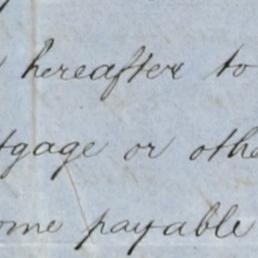 hereafter to
tgage or othe
ome payable